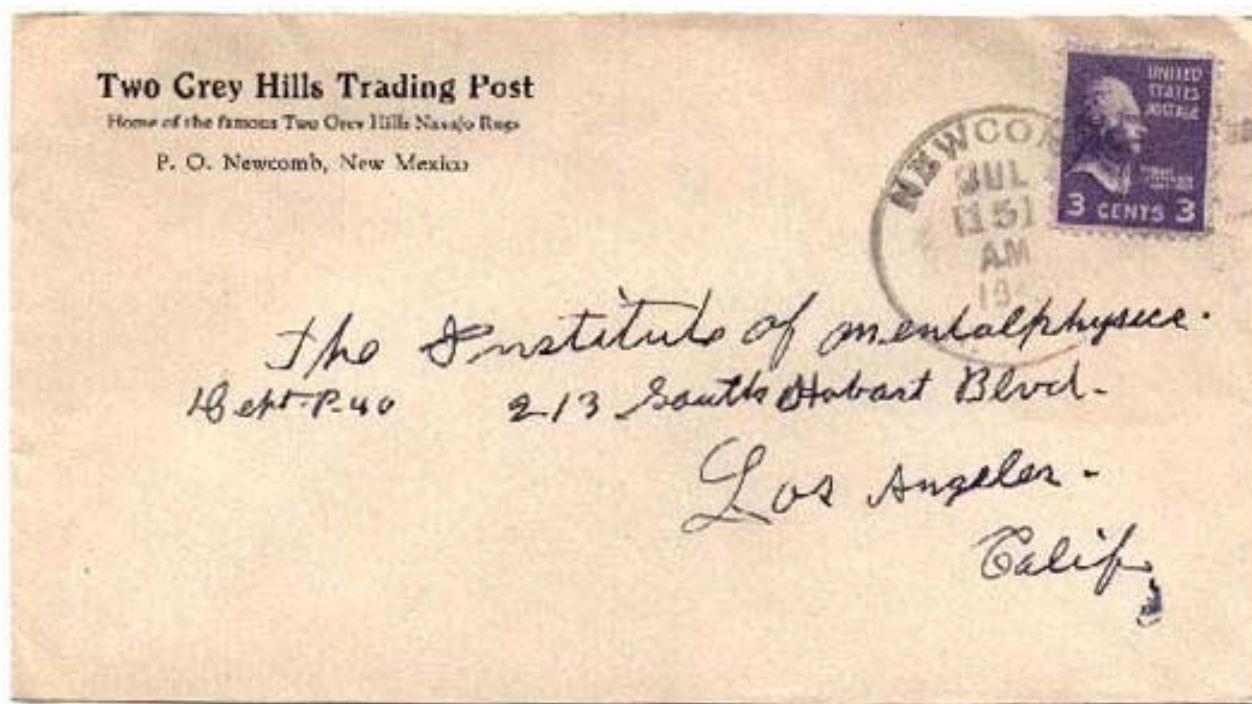 Two Grey Hills Trading Post
Home of the famous Two Grey Hills Navajo Rugs
P. O. Newcomb, New Mexico
UNITED
STATES
POSTAGE
3 CENTS 3
NEWCO
JUL
15
AM
19
The Institute of mentalphysics.
Dept-P-40 213 South Hobart Blvd.
Los Angeles.
Calif